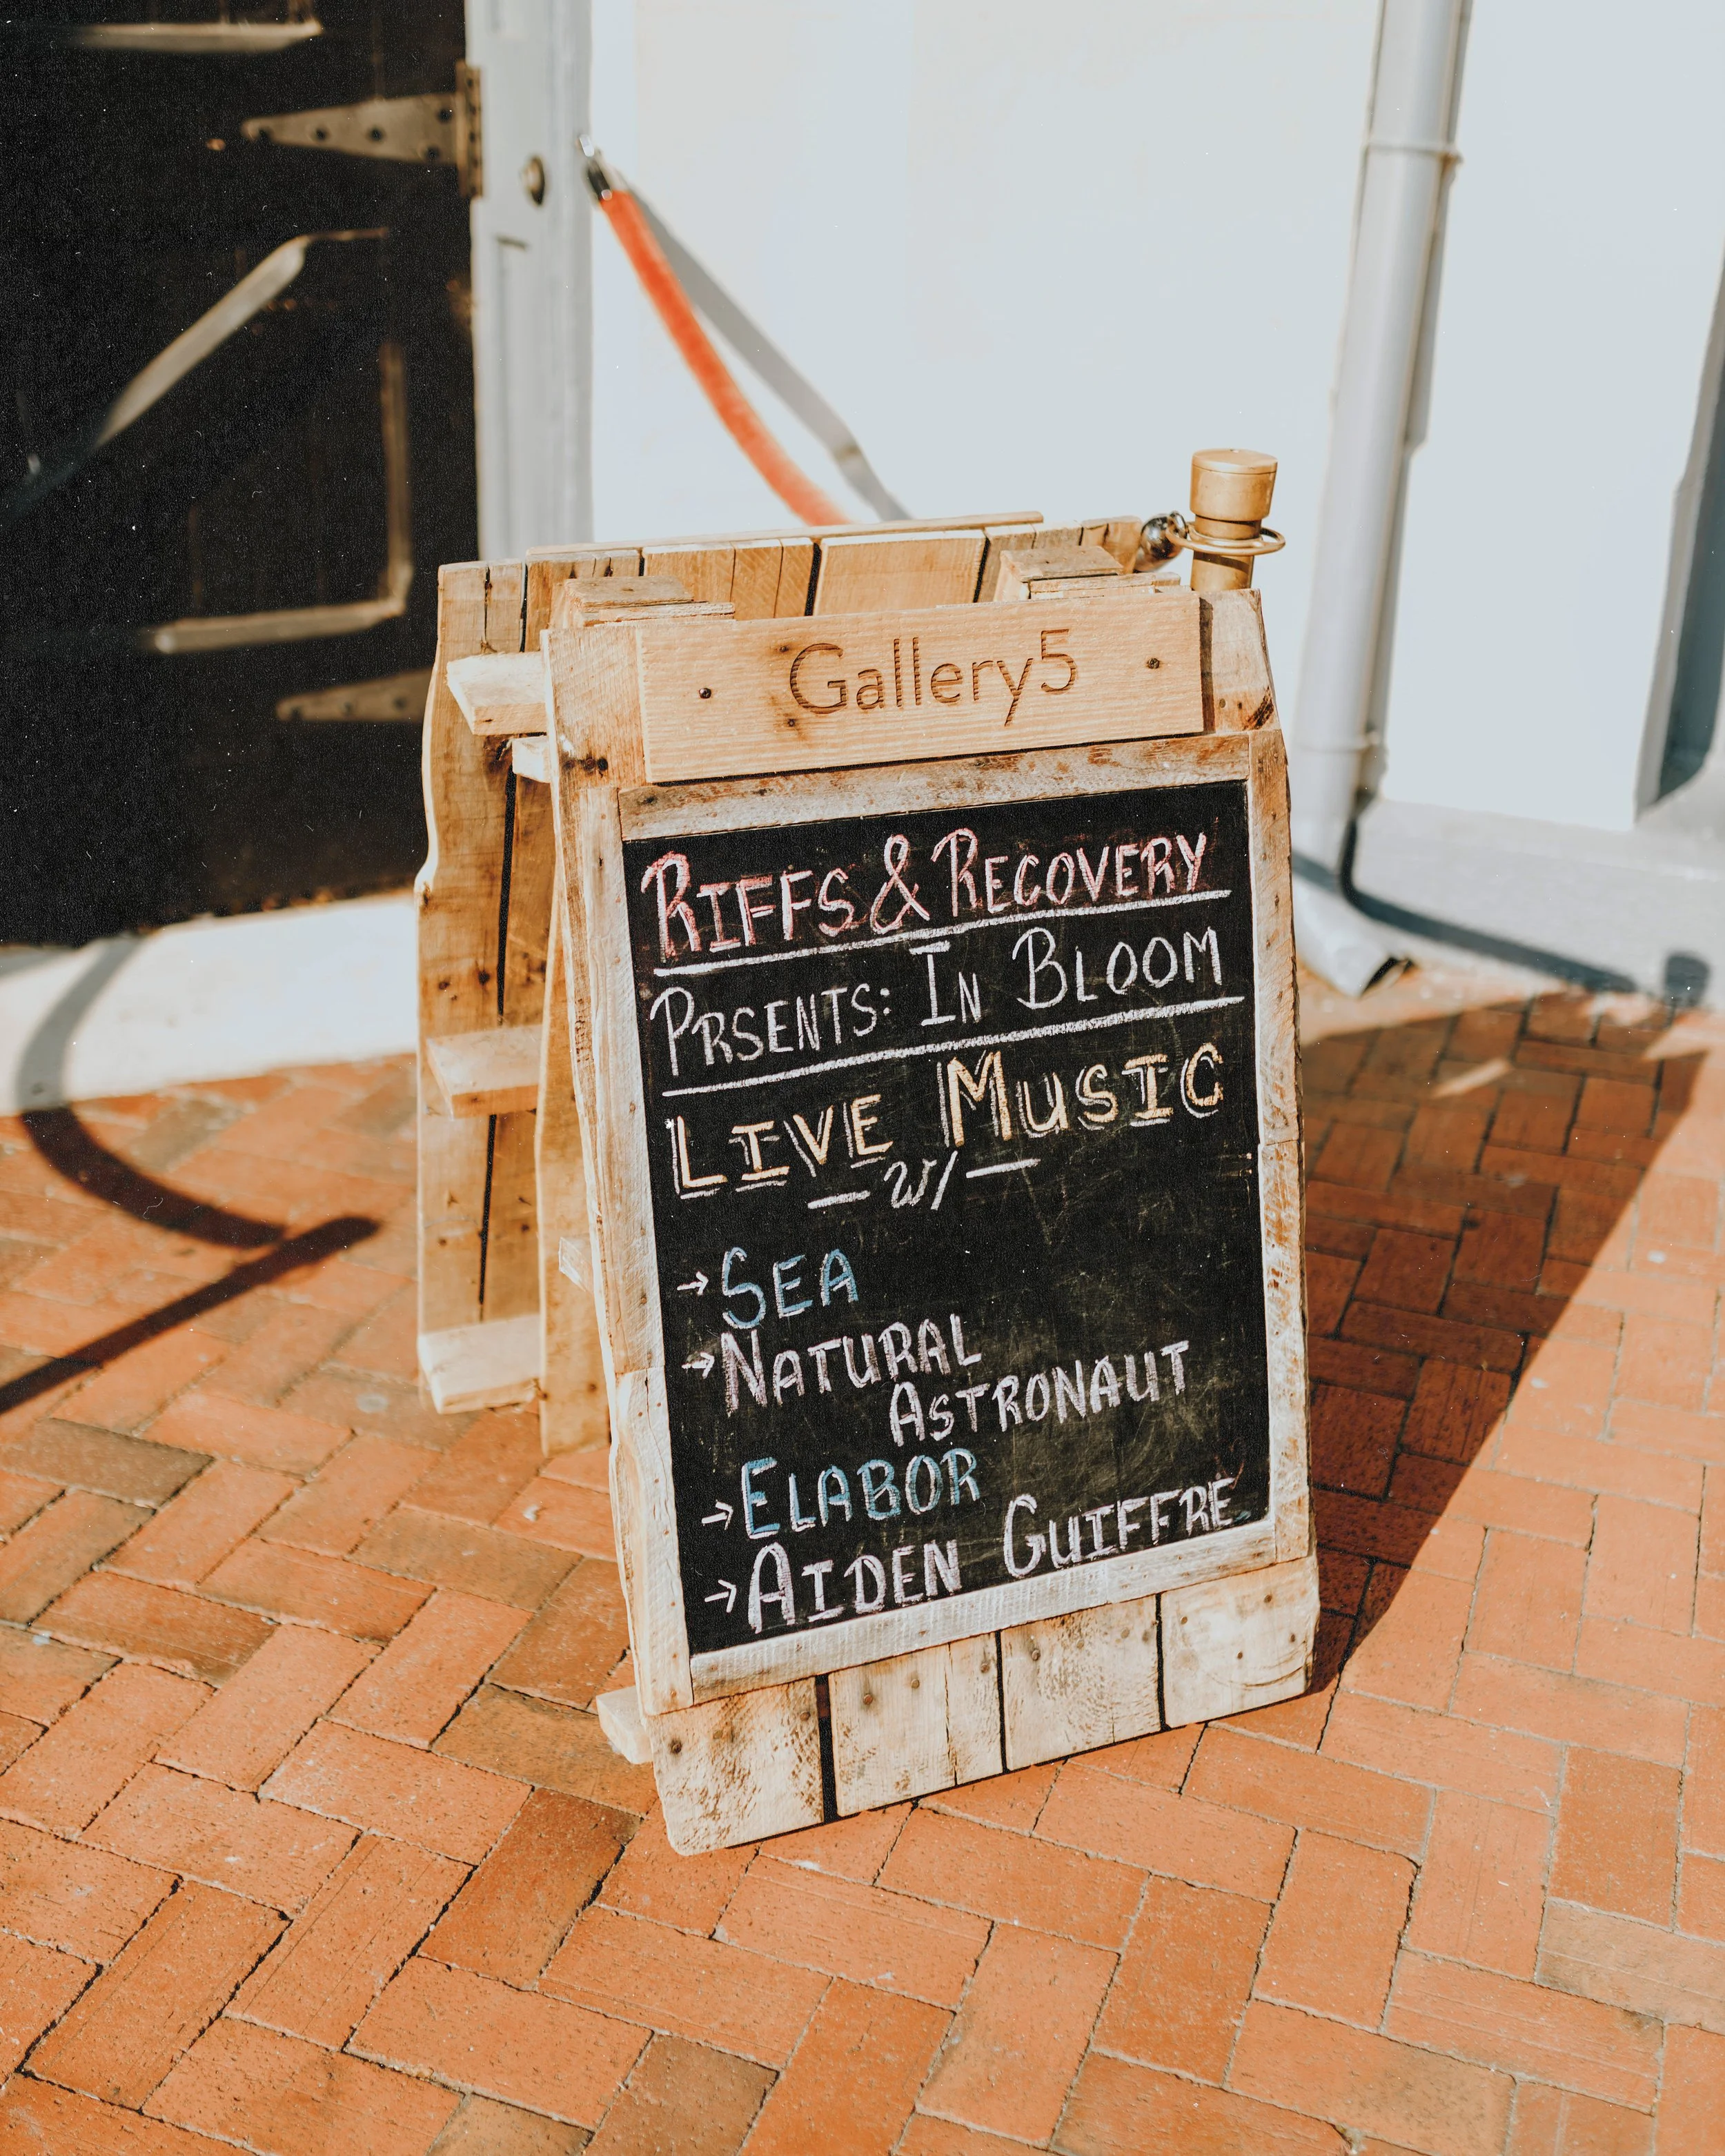 Gallery5
RIFFS & RECOVERY
PRSENTS: IN BLOOM
LIVE MUSIC
— w/ —
→ SEA
→ NATURAL
ASTRONAUT
→ ELABOR
→ AIDEN GUIFFRE